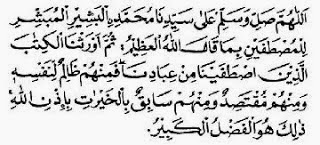 اَللّٰهُمَّ صَلِّ وَسَلِّمْ عَلٰى سَيِّدِنَا مُحَمَّدٍ ࣙالْبَشِيْرِ الْمُبَشِّرِ
لِلْمُصْطَفَيْنَ بِمَا قَالَ اللّٰهُ الْعَظِيْمُ: ثُمَّ أَوْرَثْنَا الْكِتٰبَ
الَّذِيْنَ اصْطَفَيْنَا مِنْ عِبَادِنَا فَمِنْهُمْ ظَالِمٌ لِنَفْسِهٖ
وَمِنْهُمْ مُقْتَصِدٌ وَمِنْهُمْ سَابِقٌ بِالْخَيْرٰتِ بِإِذْنِ اللّٰهِ
ذٰلِكَ هُوَ الْفَضْلُ الْكَبِيْرُ.